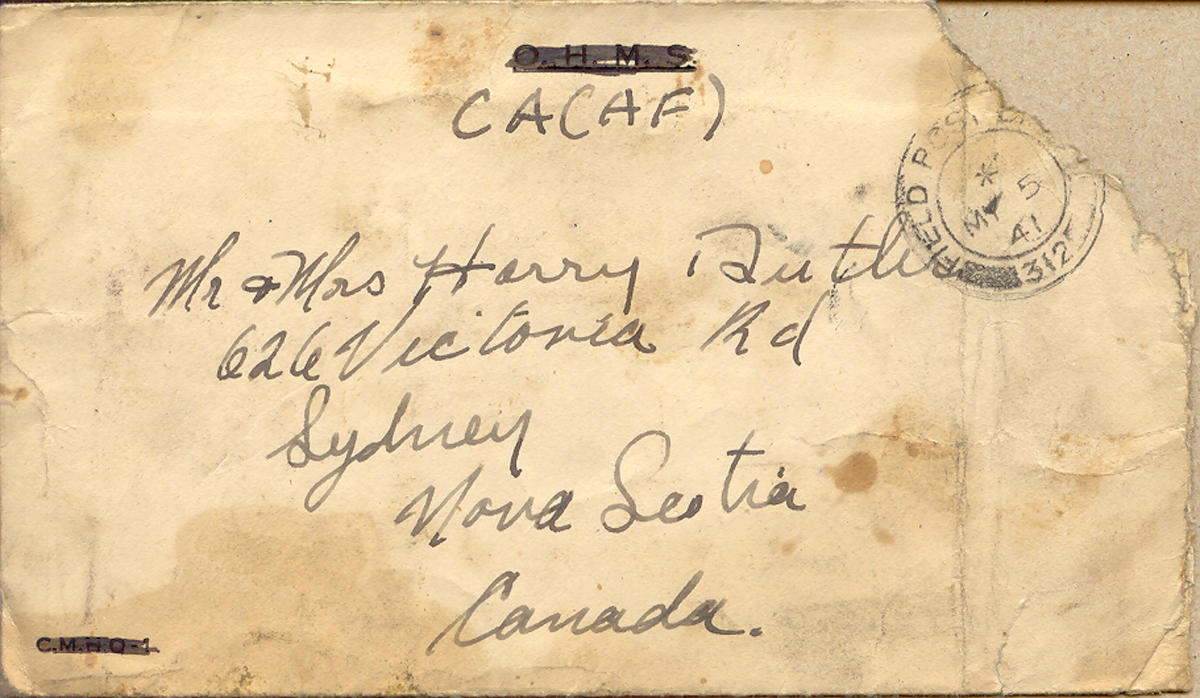 O. H. M. S.
CA(AF)
FIELD POST
* MY 5 41
312
Mr & Mrs Harry
626 Victoria Rd
Sydney
Nova Scotia
Canada.
C.M.H.Q-1